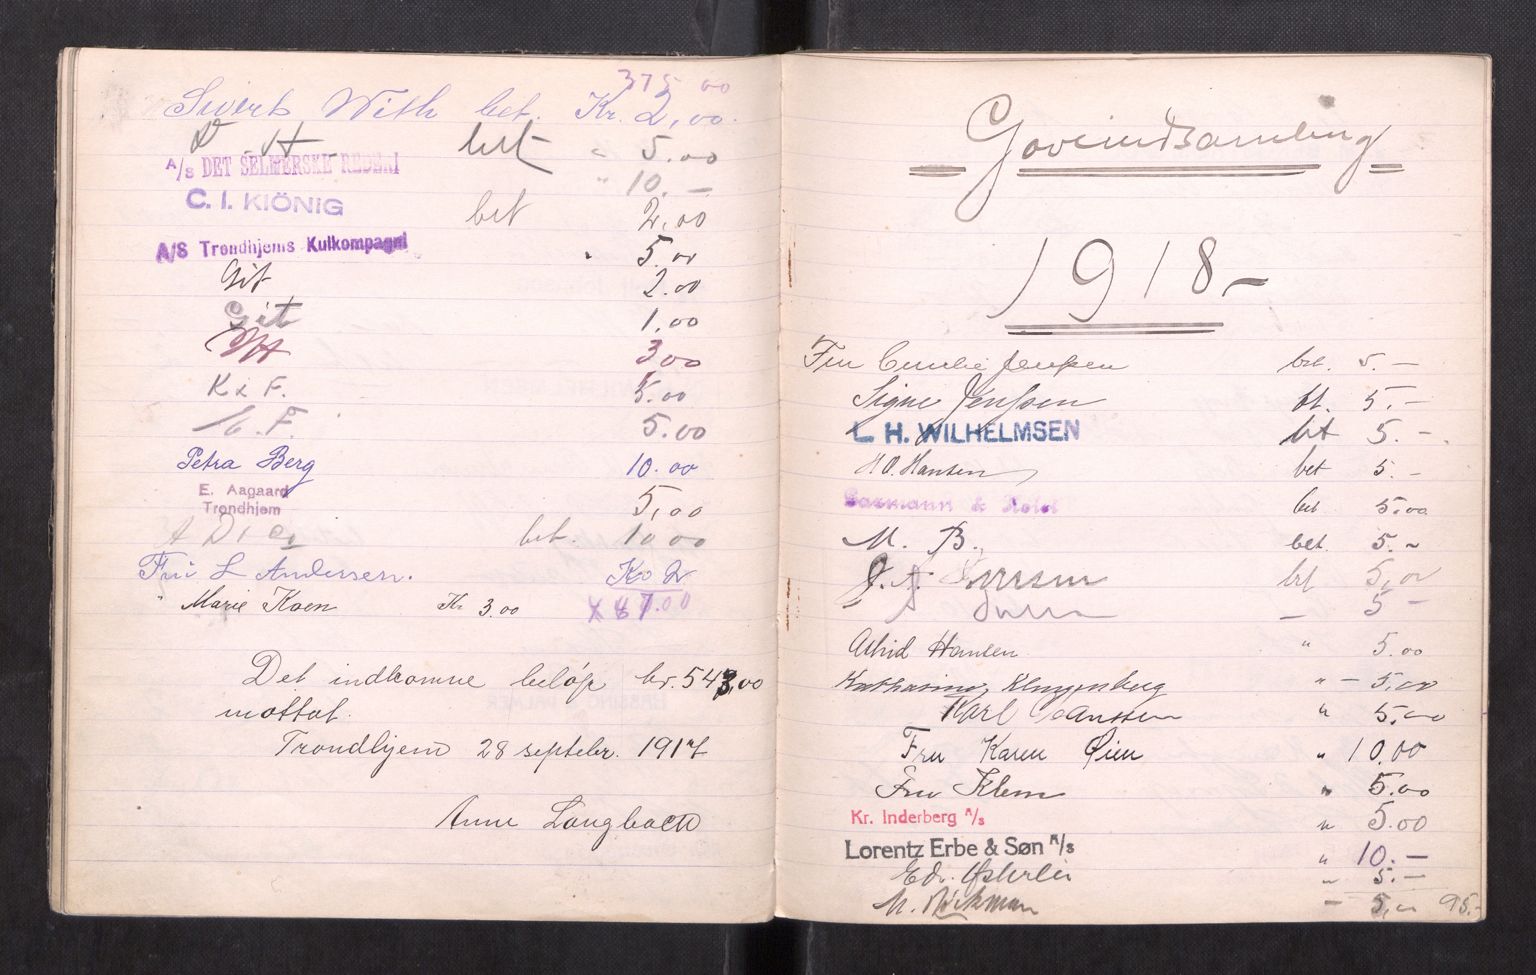 375 00
Sivert With bet. Kr. 2,00.
bet " 5.00
A/S DET SELMERSKE REDERI " 10. —
C. I. KIÖNIG bet 2,00
A/S Trondhjems Kulkompagni " 5.00
Git 2.00
Git 1,00
3 00
K & F. 5.00
F. 5.00
Petra Berg 10.00
E. Aagaard
Trondhjem 5,00
bet. 10 00
Fru L Andersen. Kr 2
" Marie Koen Kr 3.00 87.00
Det indkomne beløp kr. 543,00
mottat.
Trondhjem 28 septebr. 1917
Anne Langbach
Gaveindsamling
1918-
Fru Cecilie Jenssen bet. 5. —
Signe Jenssen bt. 5. —
L. H. WILHELMSEN bet 5. —
H.O. Hansen bet 5. —
bet 5,00
M. B. bet. 5. -
bet 5,00
— 5 —
Astrid Hansen " 5.00
Katharina Klingenberg " — 5,00
Karl Hanssen " 5,00
Fru Karen Øien " 10.00
Fru Klem " 5.00
Kr. Inderberg A/s " 5.00
Lorentz Erbe & Søn A/s " 10. —
Edv. Østerlie " 5. —
M. Wikman — 5,00 95.-